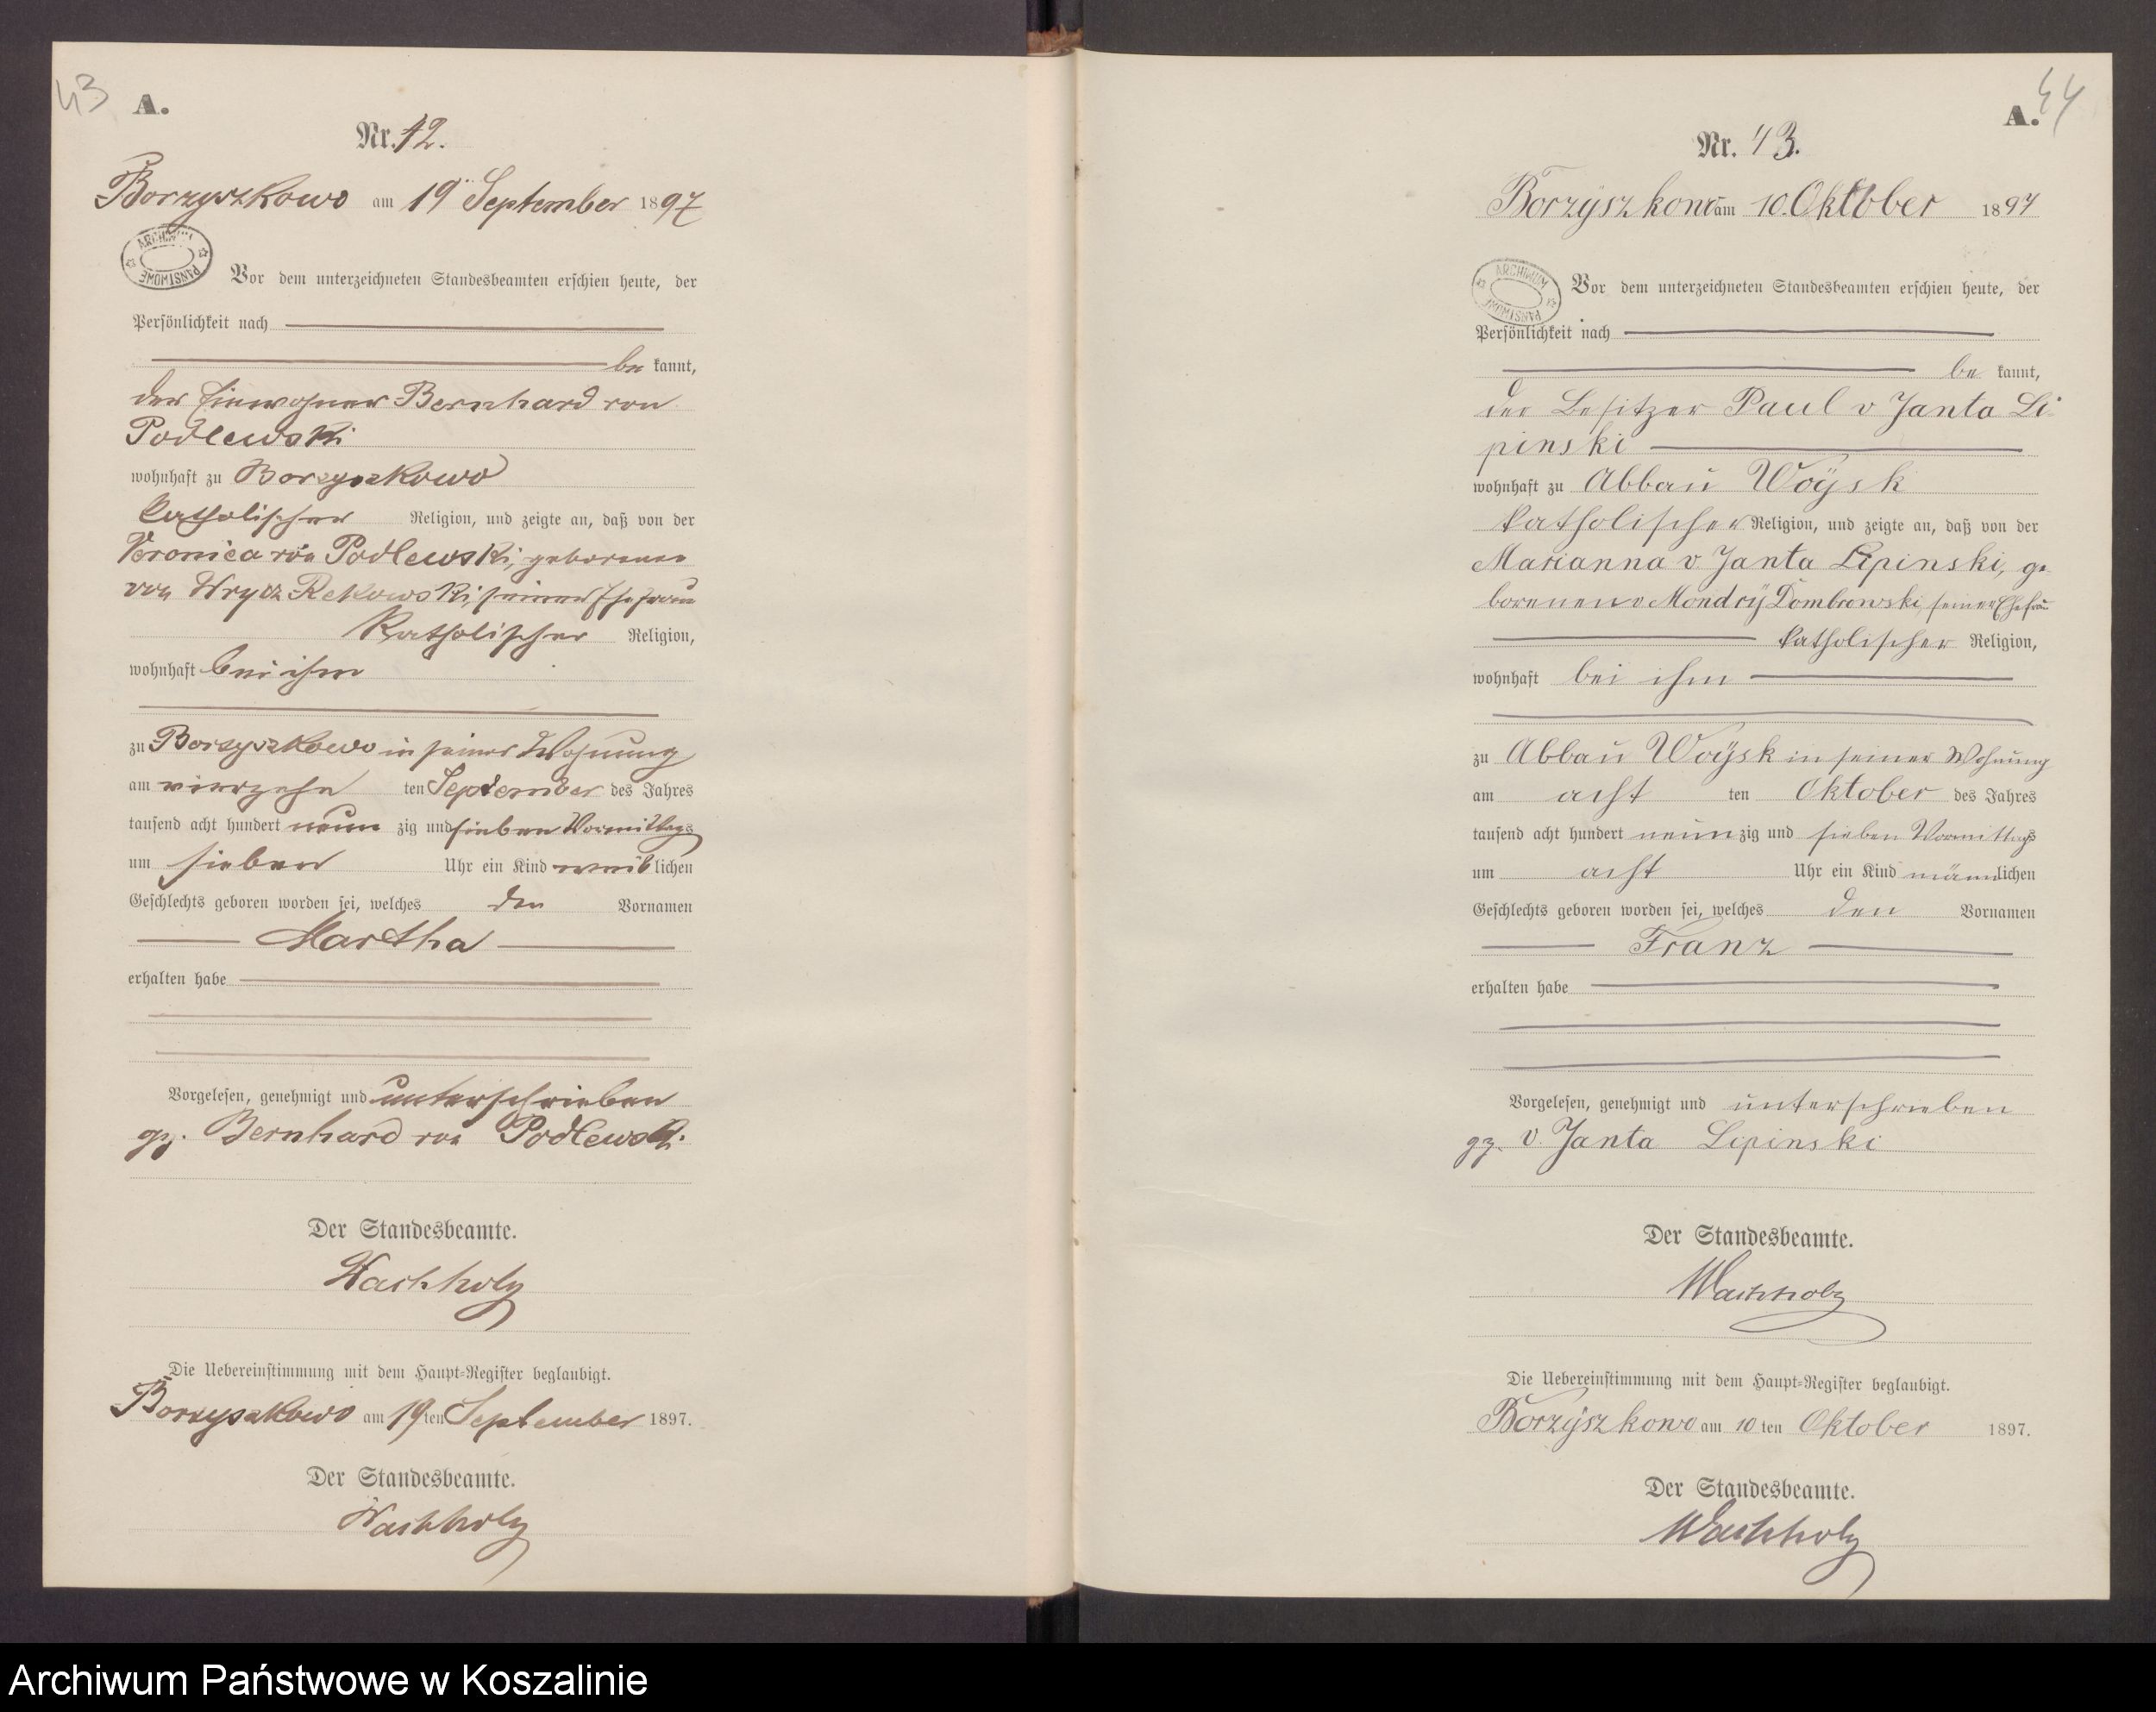 43
A.
Nr. 42.
Borzyszkowo am 19 September 1897
ARCHIWUM PAŃSTWOWE
Vor dem unterzeichneten Standesbeamten erschien heute, der
Persönlichkeit nach
be kannt,
der Einwohner Bernhard von
Podlewski
wohnhaft zu Borzyszkowo
katholischer Religion, und zeigte an, daß von der
Veronica von Podlewski, geborenen
von Wrycz Rekowski, seiner Ehefrau
katholischer Religion,
wohnhaft bei ihm
zu Borzyszkowo in seiner Wohnung
am vierzehn ten September des Jahres
tausend acht hundert neun zig und sieben Vormittags
um sieben Uhr ein Kind weib lichen
Geschlechts geboren worden sei, welches den Vornamen
Martha
erhalten habe
Vorgelesen, genehmigt und unterschrieben
gz. Bernhard von Podlewski
Der Standesbeamte.
Wachholz
Die Uebereinstimmung mit dem Haupt-Register beglaubigt.
Borzyszkowo am 19 ten September 1897.
Der Standesbeamte.
Wachholz
44
A.
Nr. 43.
Borzyszkowo am 10. Oktober 1897
ARCHIWUM PAŃSTWOWE
Vor dem unterzeichneten Standesbeamten erschien heute, der
Persönlichkeit nach
be kannt,
der Besitzer Paul v Janta Li
pinski
wohnhaft zu Abbau Woysk
katholischer Religion, und zeigte an, daß von der
Marianna v. Janta Lipinski, ge
borenen v Mondry Dombrowski, seiner Ehefrau
katholischer Religion,
wohnhaft bei ihm
zu Abbau Woysk in seiner Wohnung
am acht ten Oktober des Jahres
tausend acht hundert neun zig und sieben Vormittags
um acht Uhr ein Kind männ lichen
Geschlechts geboren worden sei, welches den Vornamen
Franz
erhalten habe
Vorgelesen, genehmigt und unterschrieben
gz. v. Janta Lipinski
Der Standesbeamte.
Wachholz
Die Uebereinstimmung mit dem Haupt-Register beglaubigt.
Borzyszkowo am 10 ten Oktober 1897.
Der Standesbeamte.
Wachholz
Archiwum Państwowe w Koszalinie